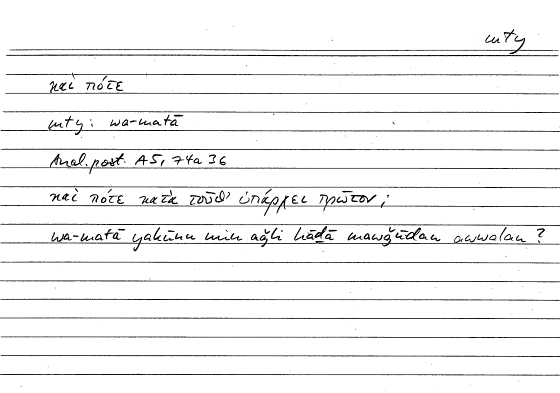 mty
καὶ πότε
mty: wa-matā
Anal. post. A5, 74a 36
καὶ πότε κατὰ τοῦθ' ὑπάρχει πρῶτον;
wa-matā yakūnu min aǧli hāḏā mawǧūdan awwalan ?